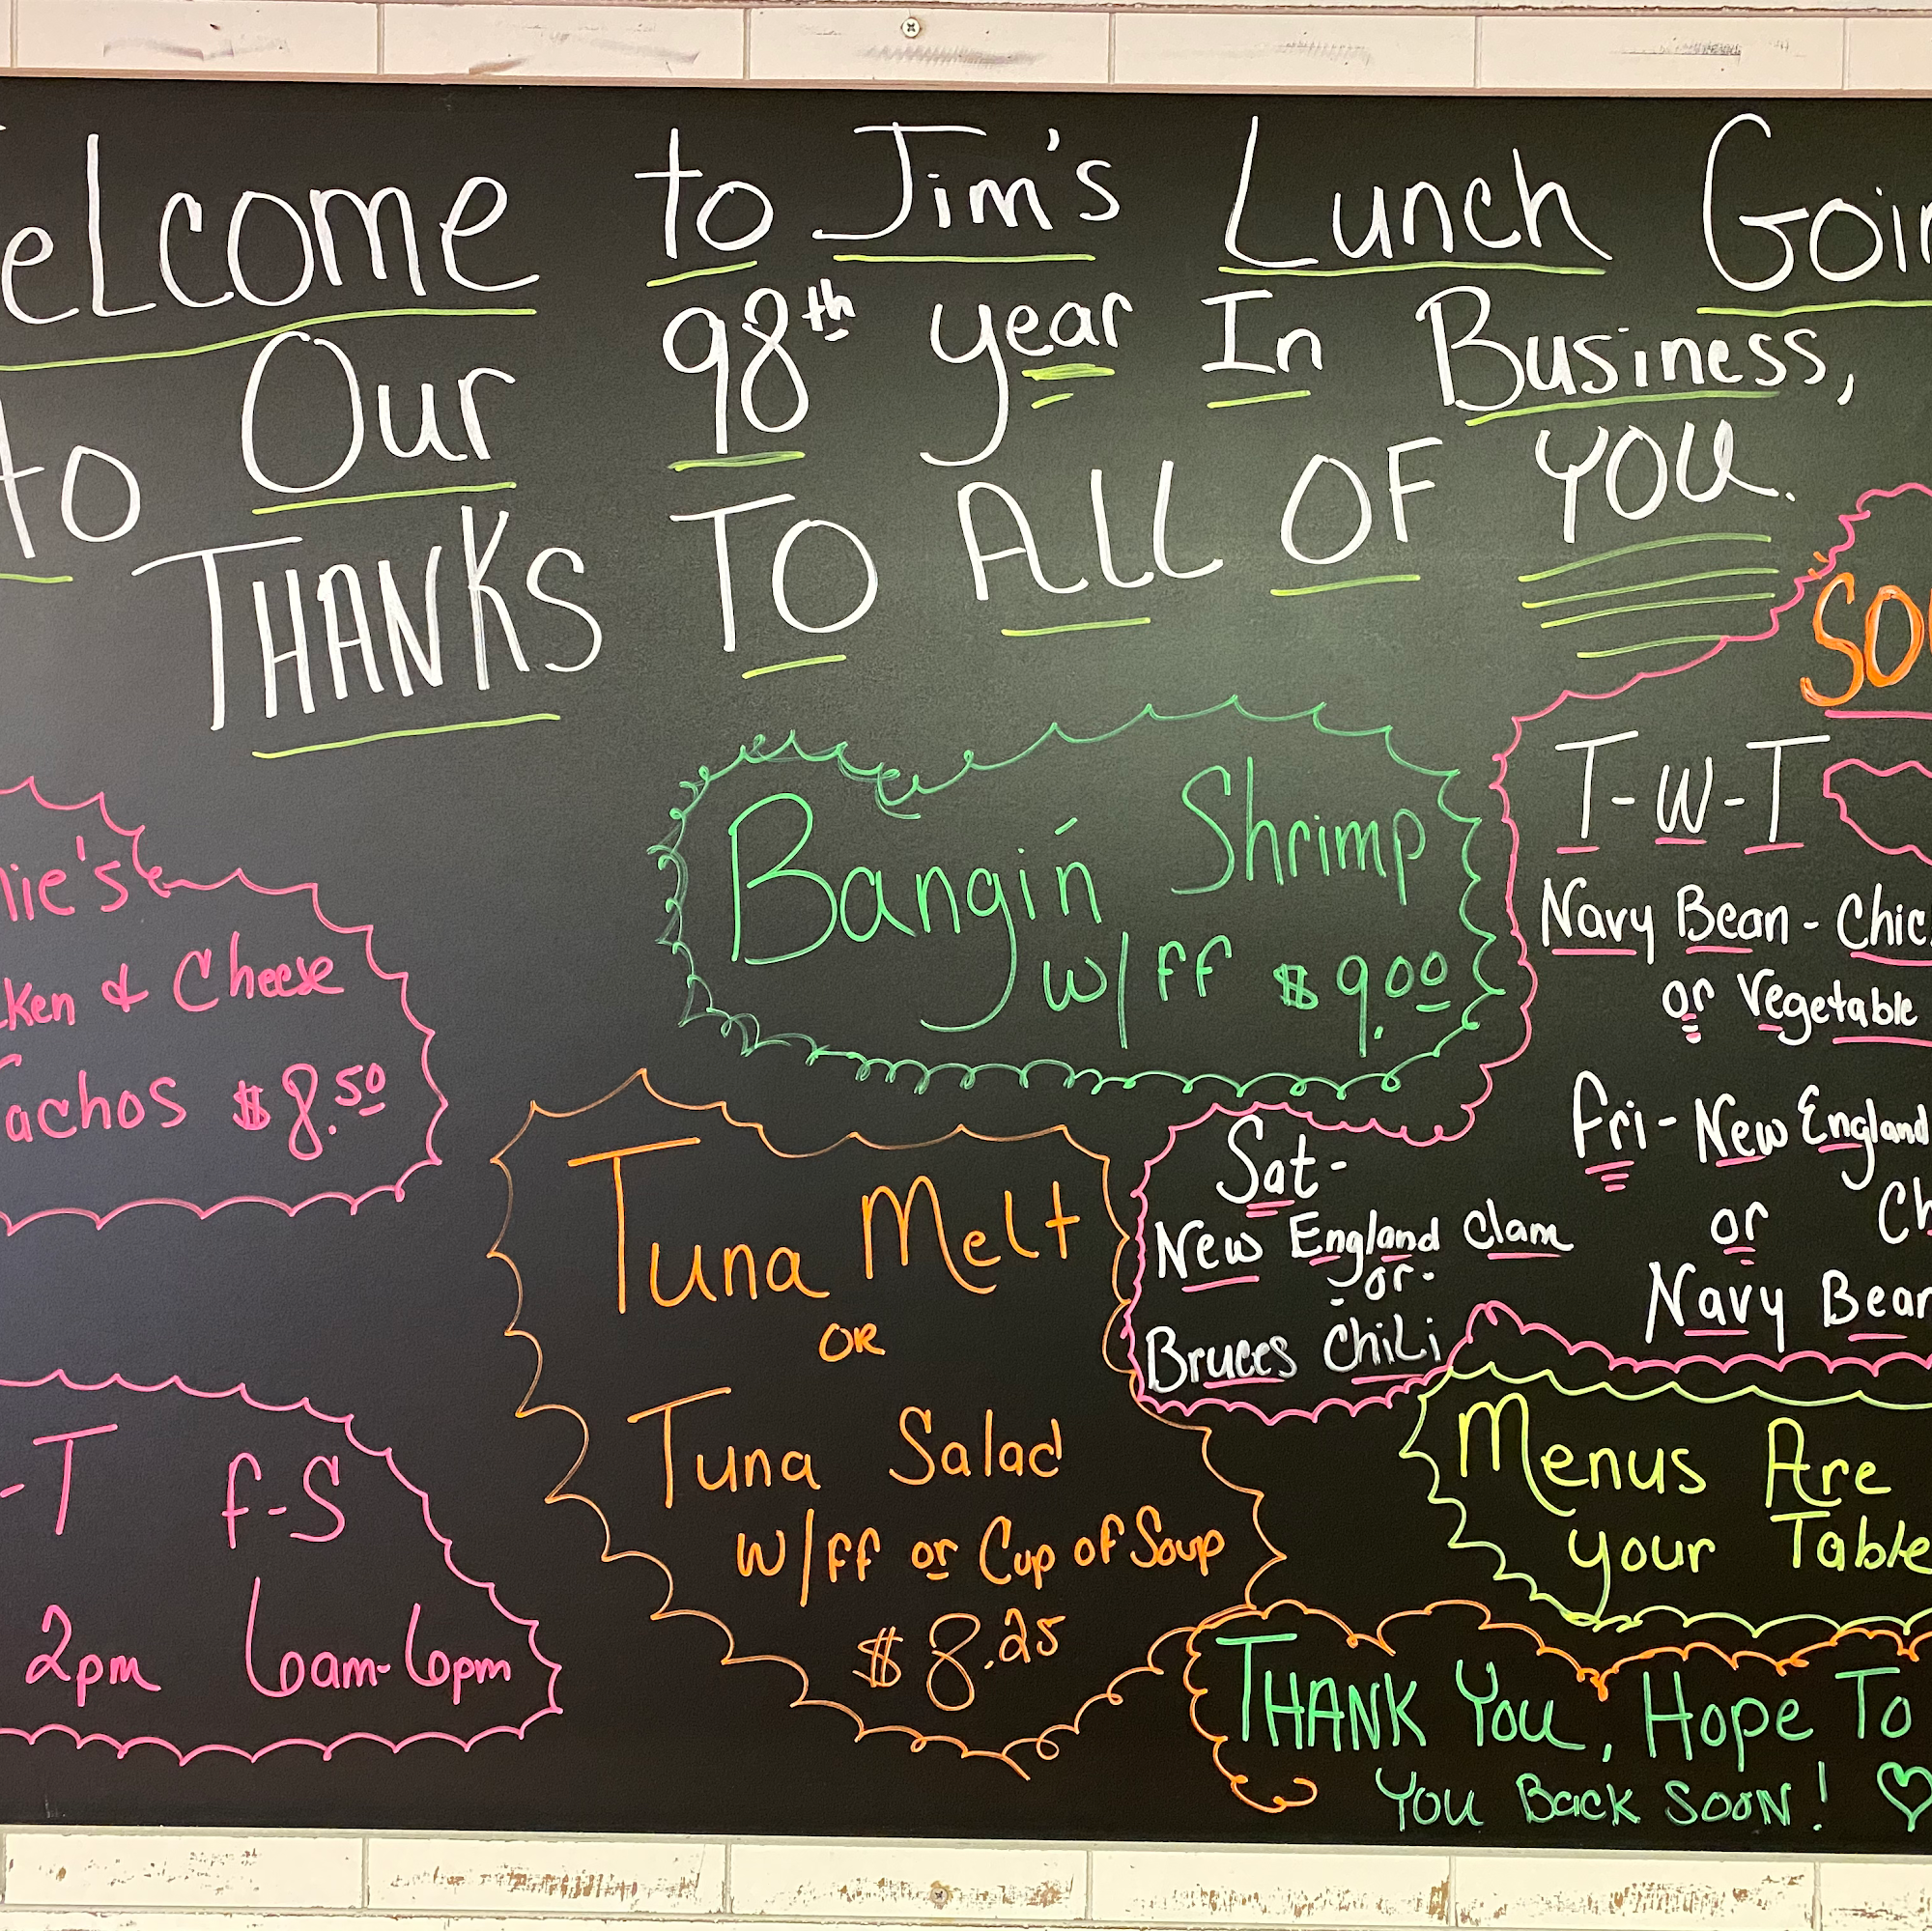 elcome to Jim's Lunch Goin
to Our 98th year In Business,
THANKS TO ALL OF YOU.
nie's
ken & Cheese
achos $8.50
Bangin' Shrimp
w/ff $9.00
SOU
T-W-T
Navy Bean - Chic
or Vegetable
Fri - New England
or Ch
Navy Bean
Sat-
New England Clam
-or-
Bruces Chili
Tuna Melt
OR
Tuna Salad
w/ff or Cup of Soup
$8.25
-T F-S
2pm 6am-6pm
Menus Are
your Table
THANK YOU, Hope To
YOU BacK SOON!